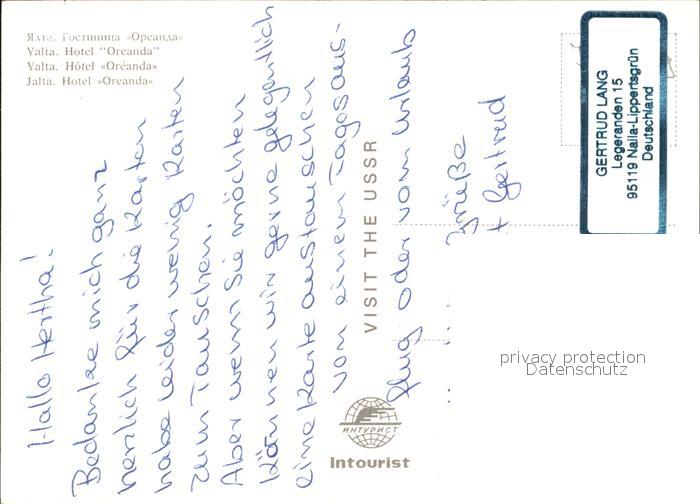 Ялта. Гостиница «Ореанда»
Yalta. Hotel "Oreanda"
Yalta. Hôtel «Oréanda»
Jalta. Hotel »Oreanda«
Hallo Hertha!
Bedanke mich ganz
herzlich für die Karten
habe leider wenig Karten
zum Tauschen.
Aber wenn Sie möchten
können wir gerne gelegentlich
eine Karte austauschen
von einem Tagesaus-
flug oder vom Urlaub
Grüße
+ Gertrud
VISIT THE USSR
ИНТУРИСТ
Intourist
GERTRUD LANG
Legeranden 15
95119 Naila-Lippertsgrün
Deutschland
privacy protection
Datenschutz